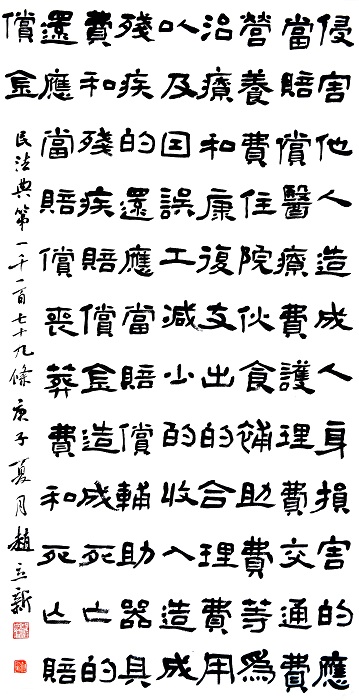 侵害他人造成人身損害的應
當賠償醫療費護理費交通費
營養費住院伙食補助費等為
治療和康復支出的合理費用
以及因誤工減少的收入造成
殘疾的還應當賠償輔助器具
費和殘疾賠償金造成死亡的
還應當賠償喪葬費和死亡賠
償金
民法典第一千一百七十九條庚子夏月趙立新